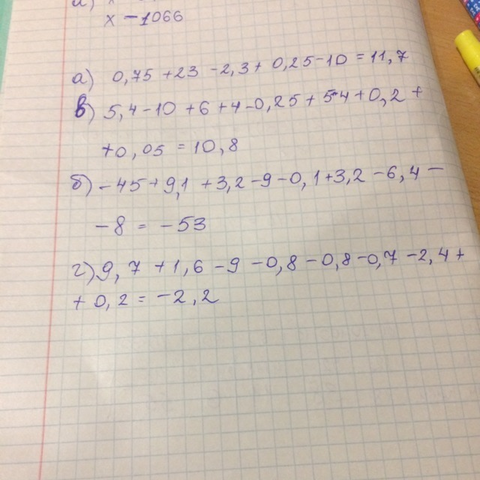 х - 1066
а) 0,75 + 23 - 2,3 + 0,25 - 10 = 11,7
в) 5,4 - 10 + 6 + 4 - 0,25 + 5 4 + 0,2 +
+ 0,05 = 10,8
б) - 45 + 9,1 + 3,2 - 9 - 0,1 + 3,2 - 6,4 -
- 8 = - 53
г) 9,7 + 1,6 - 9 - 0,8 - 0,8 - 0,7 - 2,4 +
+ 0,2 = - 2,2